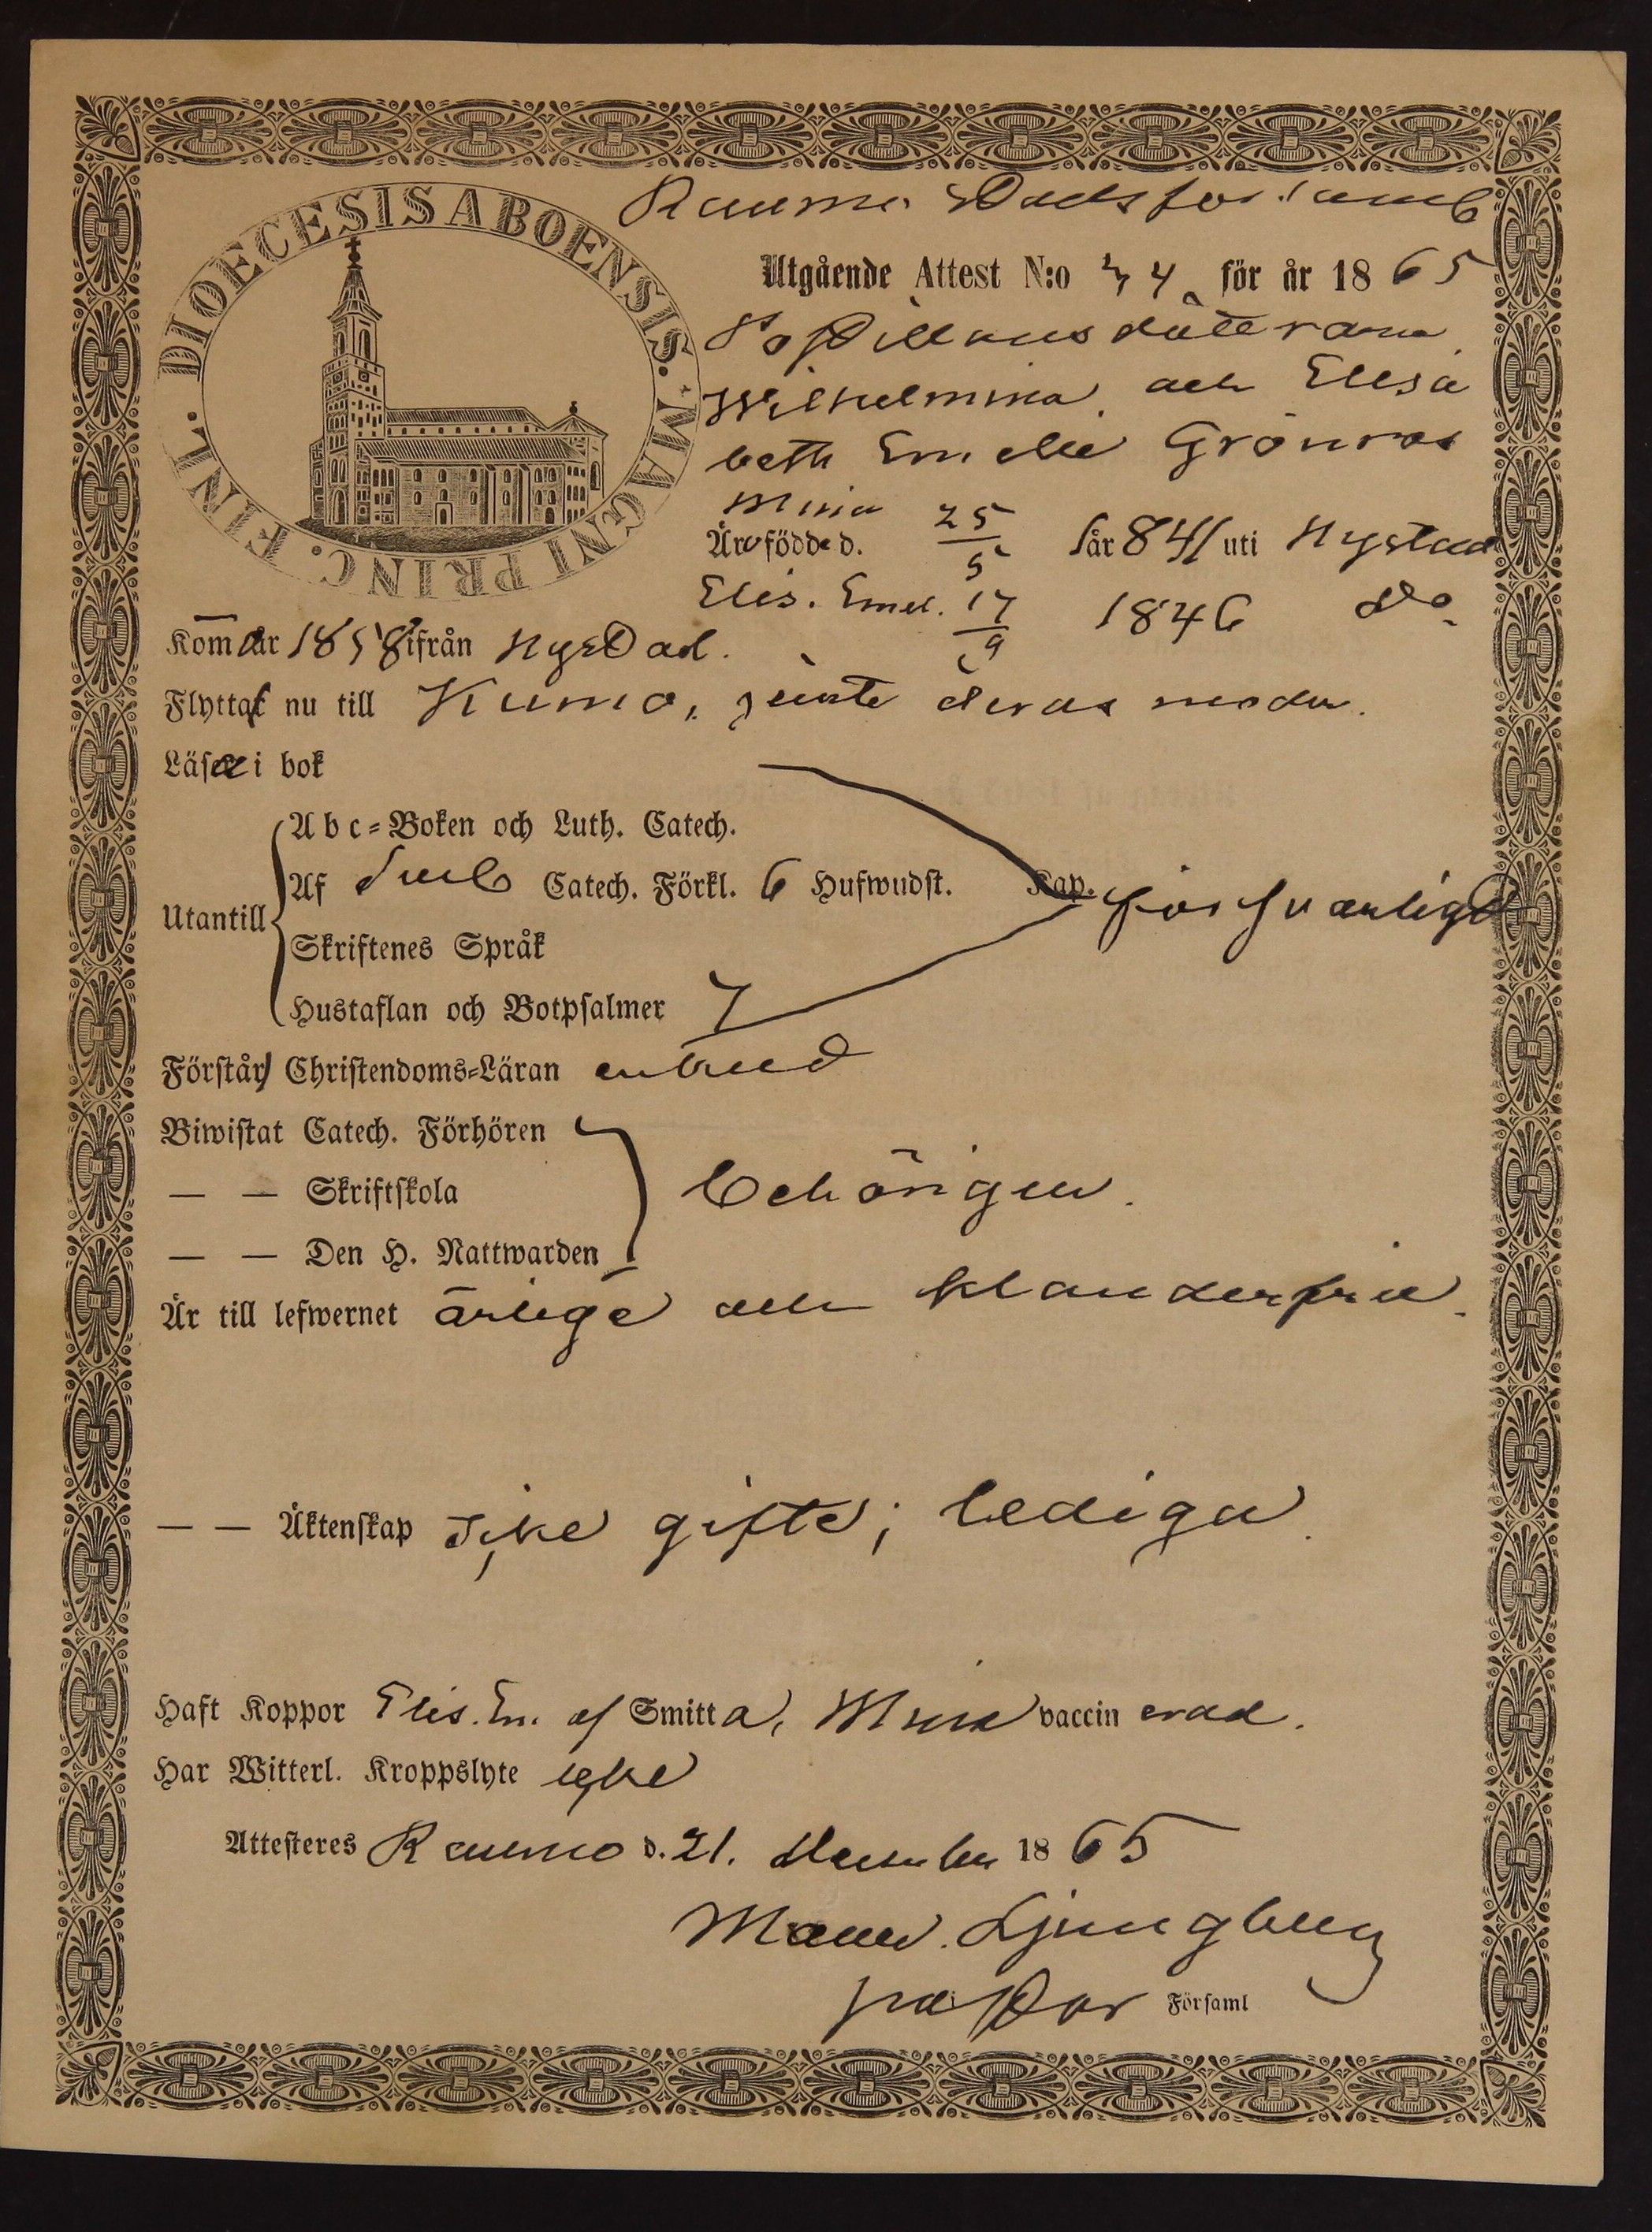 DIOECESIS ABOENSIS. MAGNI PRINC. FINL.
Raumo Stadsförsaml
Utgående Attest N:o 74 för år 1865
Postillionsdöttrarna
Wilhelmina och Elisa
beth Emelie Grönroos
Mina
Äro födde d. 25/5 år 841 uti Nystad
Elis. Emel. 17/9 1846 do
Kom år 1858 ifrån Nystad.
Flytta nu till Kumo, jemte deras moder.
Läsa i bok
Utantill
Abc-Boken och Luth. Catech.
Af Sveb Catech. Förkl. 6 Hufwudst. Kap. försvarligt
Skriftenes Språk
Hustaflan och Botpsalmer 7
Förstår Christendoms-Läran enkned
Biwistat Catech. Förhören
— — Skriftskola behörigen.
— — Den H. Nattwarden
Är till lefwernet ärliga och klanderfria.
— — Äktenskap icke gifta; lediga.
Haft Koppor Elis. Em. af Smitta, Mina vaccinerad.
Har Witterl. Kroppslyte icke
Attesteres Raumo d. 21. December 1865
Ljungberg
pastor Församl